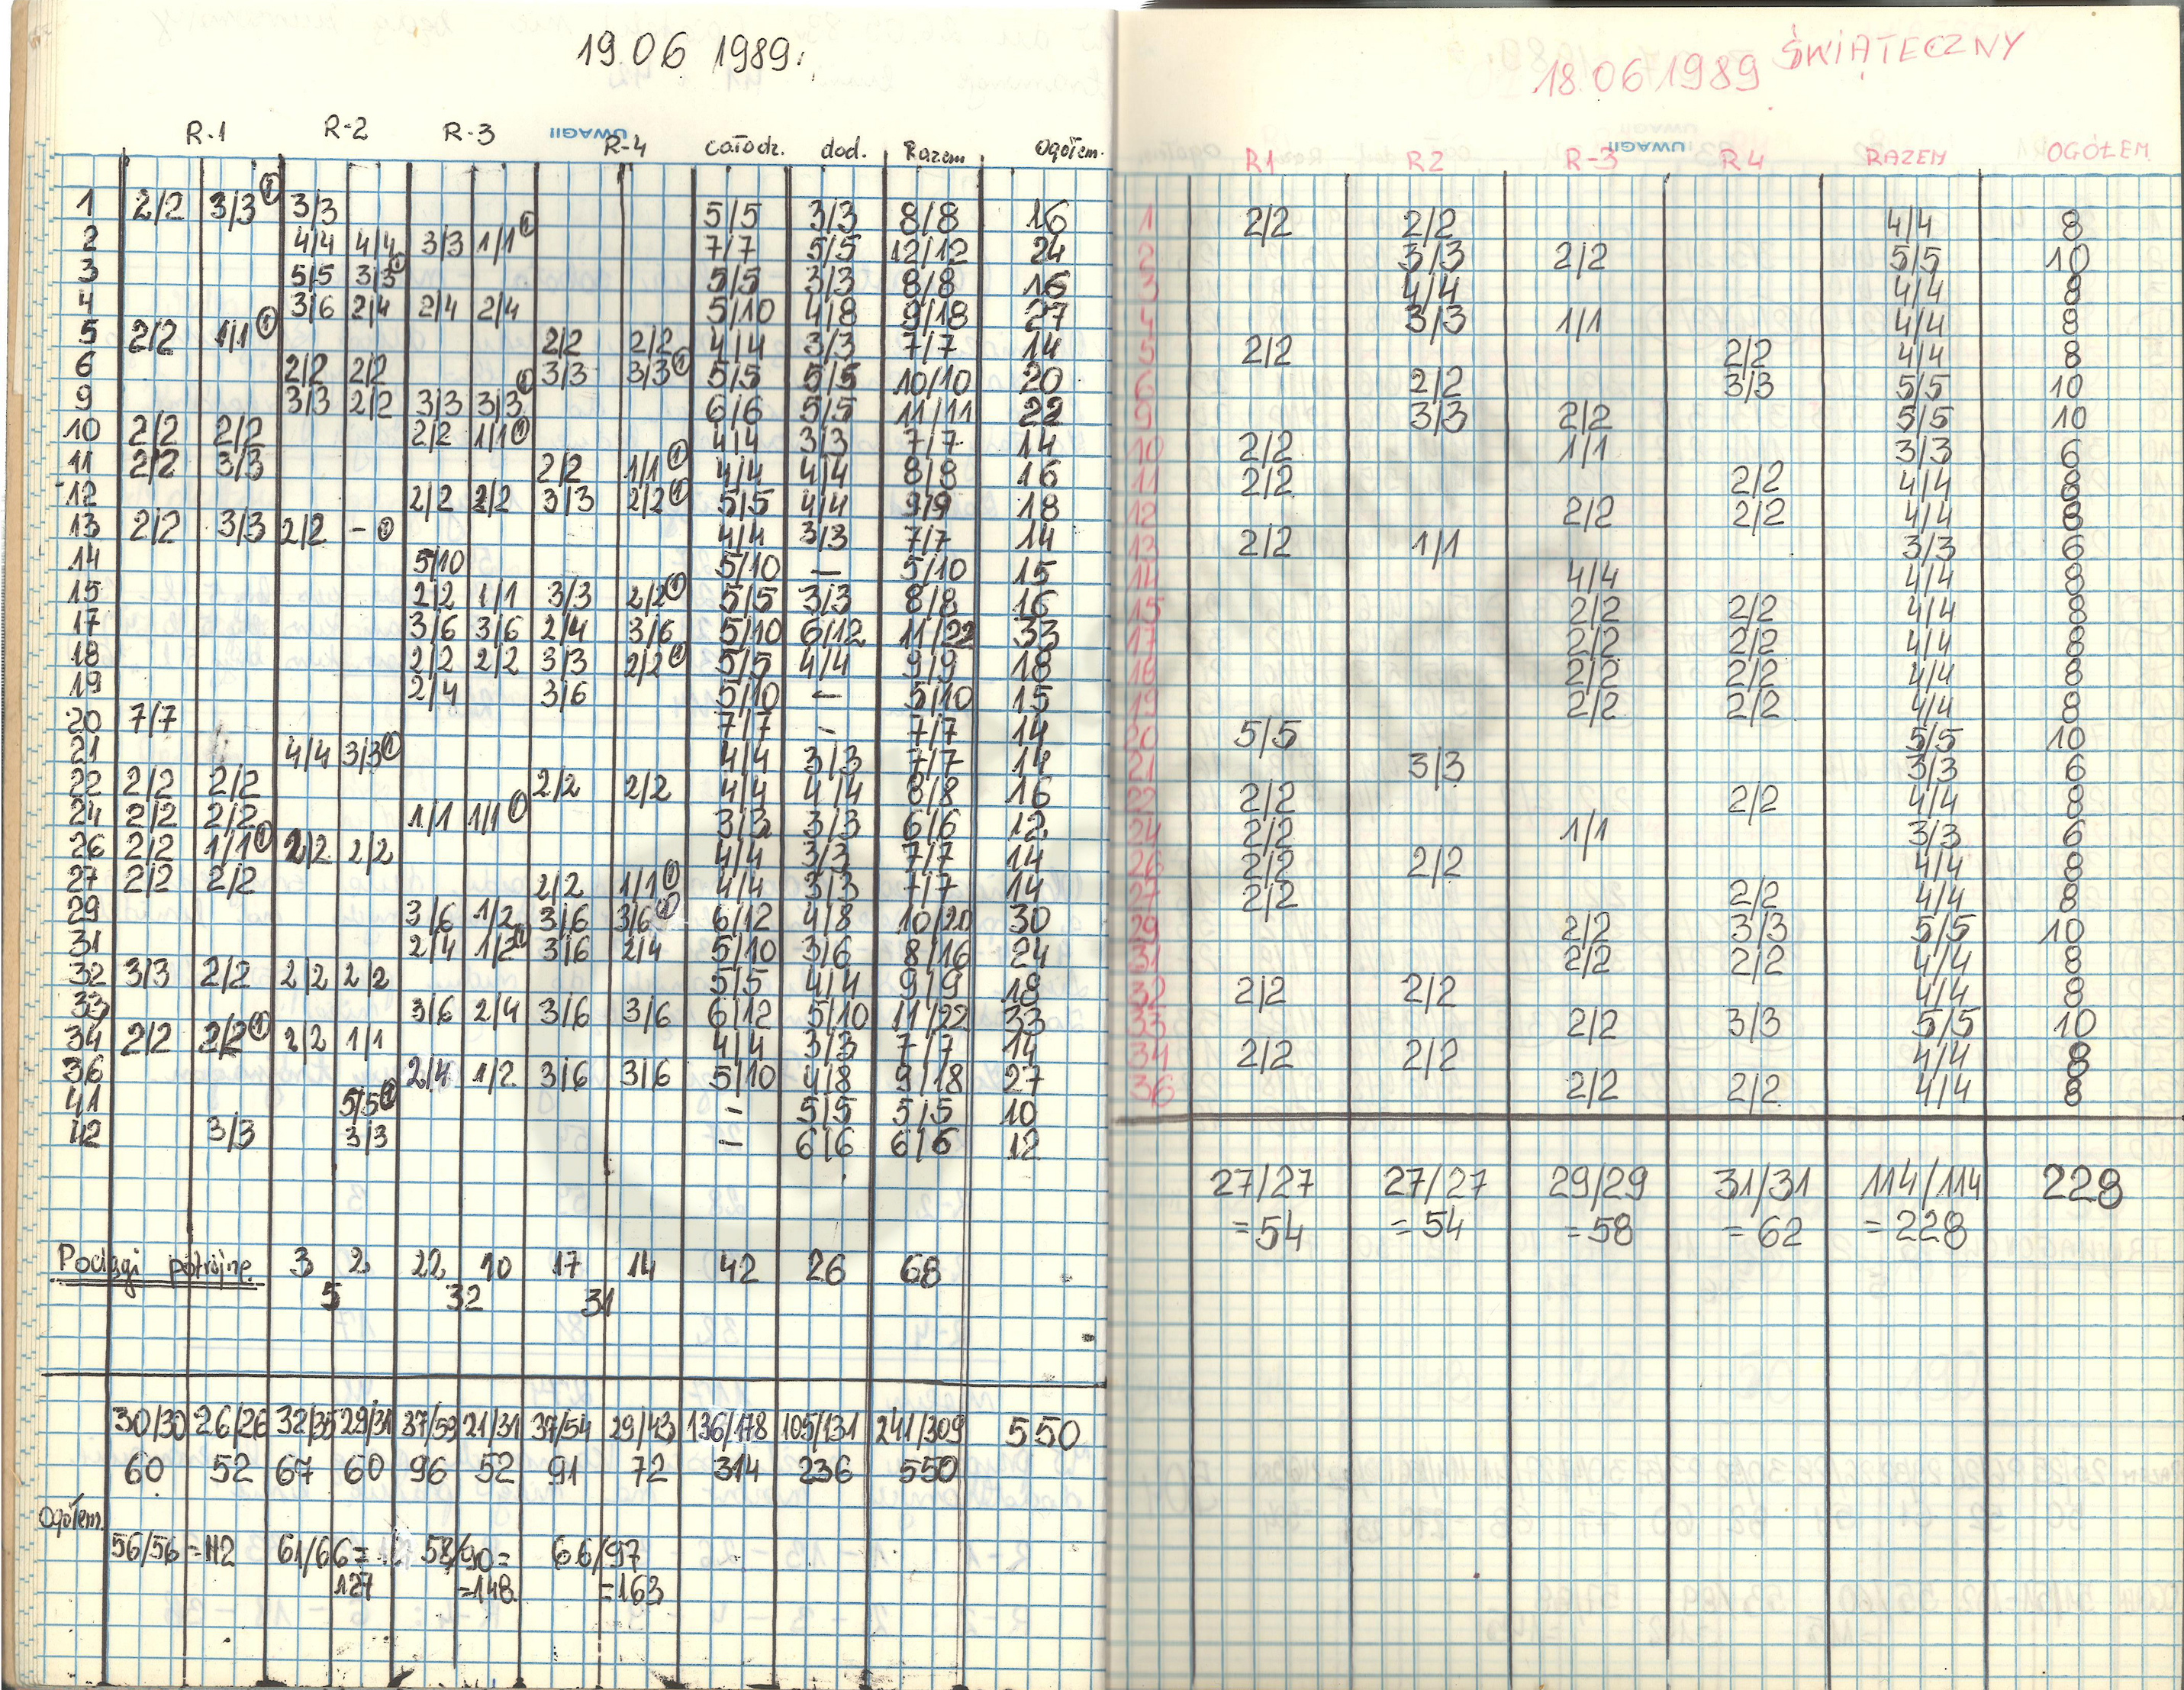 19.06 1989r.
R-1 R-2 R-3 UWAGI! R-4 całodz. dod. Razem Ogółem.
1 2/2 3/3 ① 3/3 5/5 3/3 8/8 16
2 4/4 4/4 3/3 1/1 ① 7/7 5/5 12/12 24
3 5/5 3/3 ① 5/5 3/3 8/8 16
4 3/6 2/4 2/4 2/4 5/10 4/8 9/18 27
5 2/2 1/1 ① 2/2 2/2 4/4 3/3 7/7 14
6 2/2 2/2 3/3 3/3 ① 5/5 5/5 10/10 20
9 3/3 2/2 3/3 3/3 ① 6/6 5/5 11/11 22
10 2/2 2/2 2/2 1/1 ① 4/4 3/3 7/7 14
11 2/2 3/3 2/2 1/1 ① 4/4 4/4 8/8 16
12 2/2 2/2 3/3 2/2 ① 5/5 4/4 9/9 18
13 2/2 3/3 2/2 - ① 4/4 3/3 7/7 14
14 5/10 5/10 — 5/10 15
15 2/2 1/1 3/3 2/2 ① 5/5 3/3 8/8 16
17 3/6 3/6 2/4 3/6 5/10 6/12 11/22 33
18 2/2 2/2 3/3 2/2 ① 5/5 4/4 9/9 18
19 2/4 3/6 5/10 — 5/10 15
20 7/7 7/7 - 7/7 14
21 4/4 3/3 ① 4/4 3/3 7/7 14
22 2/2 2/2 2/2 2/2 4/4 4/4 8/8 16
24 2/2 2/2 1/1 1/1 ① 3/3 3/3 6/6 12
26 2/2 1/1 ① 2/2 2/2 4/4 3/3 7/7 14
27 2/2 2/2 2/2 1/1 ① 4/4 3/3 7/7 14
29 3/6 1/2 3/6 3/6 ① 6/12 4/8 10/20 30
31 2/4 1/2 ① 3/6 2/4 5/10 3/6 8/16 24
32 3/3 2/2 2/2 2/2 5/5 4/4 9/9 18
33 3/6 2/4 3/6 3/6 6/12 5/10 11/22 33
34 2/2 2/2 ① 2/2 1/1 4/4 3/3 7/7 14
36 2/4 1/2 3/6 3/6 5/10 4/8 9/18 27
41 5/5 ① - 5/5 5/5 10
42 3/3 3/3 - 6/6 6/6 12
Pociągi potrójne 3 2 22 10 17 14 42 26 68
5 32 31
30/30 26/26 32/35 29/31 37/59 21/31 37/54 29/43 136/178 105/131 241/309 550
60 52 67 60 96 52 91 72 314 236 550
Ogółem.
56/56 = 112 61/66 = 58/90 = 66/97
127 =148 =163
18.06 1989 ŚWIĄTECZNY
R1 R2 R-3 UWAGI! R4 RAZEM OGÓŁEM
1 2/2 2/2 4/4 8
2 3/3 2/2 5/5 10
3 4/4 4/4 8
4 3/3 1/1 4/4 8
5 2/2 2/2 4/4 8
6 2/2 3/3 5/5 10
9 3/3 2/2 5/5 10
10 2/2 1/1 3/3 6
11 2/2 2/2 4/4 8
12 2/2 2/2 4/4 8
13 2/2 1/1 3/3 6
14 4/4 4/4 8
15 2/2 2/2 4/4 8
17 2/2 2/2 4/4 8
18 2/2 2/2 4/4 8
19 2/2 2/2 4/4 8
20 5/5 5/5 10
21 3/3 3/3 6
22 2/2 2/2 4/4 8
24 2/2 1/1 3/3 6
26 2/2 2/2 4/4 8
27 2/2 2/2 4/4 8
29 2/2 3/3 5/5 10
31 2/2 2/2 4/4 8
32 2/2 2/2 4/4 8
33 2/2 3/3 5/5 10
34 2/2 2/2 4/4 8
36 2/2 2/2 4/4 8
27/27 27/27 29/29 31/31 114/114 228
=54 =54 =58 =62 =228